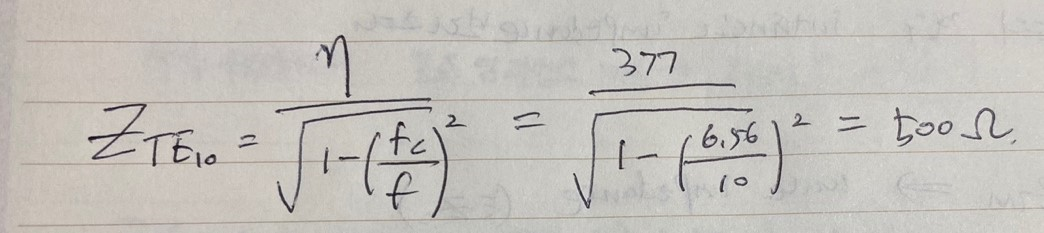 Z_{TE_{10}} = \frac{\eta}{\sqrt{1-\left(\frac{f_c}{f}\right)^2}} = \frac{377}{\sqrt{1-\left(\frac{6.56}{10}\right)^2}} = 500 Ω.